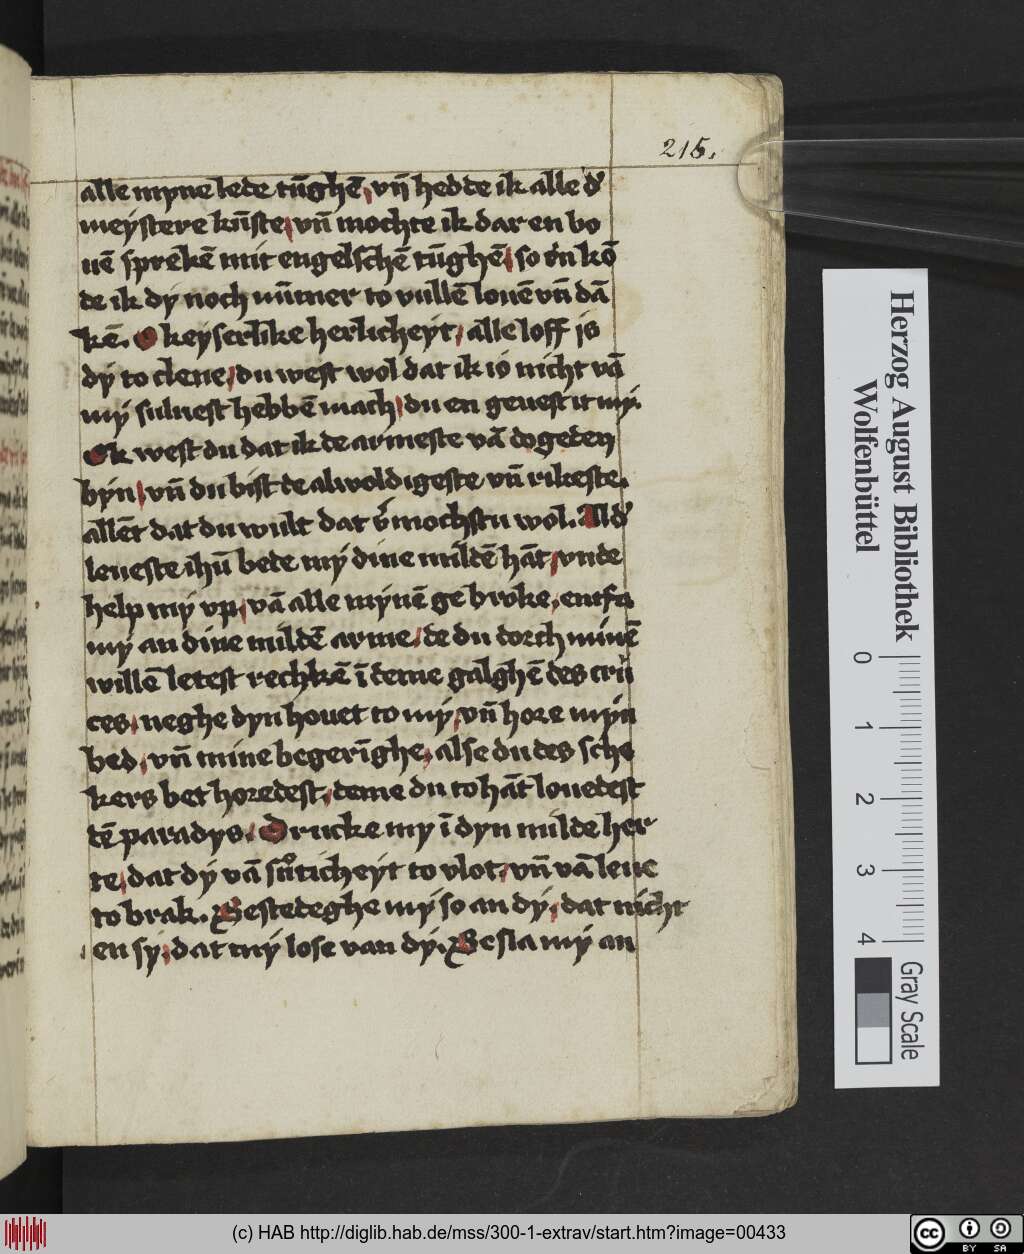 215.
alle myne lede tūghē, vn̄ hedde ik alle d'
meystere kūste, vn̄ mochte ik dar en bo
uē sprekē mit engelschē tūghē, so en kō
de ik dy noch nūmer to vullē louē vn̄ dā
kē. O keyserlike herlicheyt, alle loff is
dy to clene, du west wol dat ik is nicht vā
my suluest hebbē mach, du en geuest it my.
Ok west du dat ik de armeste vā dogeden
byn, vn̄ du bist de alwoldigeste vn̄ rikeste.
allēt dat du wult dat v'mochstu wol. Alld'
leueste ihū bede my dine mildē hāt, vnde
help my vp, vā alle mynē gebroke, entfa
my an dine mildē arme, de du dorch minē
willē letest rechkē ī deme galghē des cru
ces, neghe dyn houet to my, vn̄ hore myn
bed, vn̄ mine begerīghe, alse du des sche
kers bet horedest, deme du to hāt louedest
dē paradys. Drucke my ī dyn milde her
te, dat dy vā soticheyt to vlot, vn̄ vā leue
to brak. Bestedeghe my so an dy, dat nicht
en sy, dat my lose van dy. Besla my an
Herzog August Bibliothek
Wolfenbüttel
0 1 2 3 4
Gray Scale
(c) HAB http://diglib.hab.de/mss/300-1-extrav/start.htm?image=00433
cc BY SA